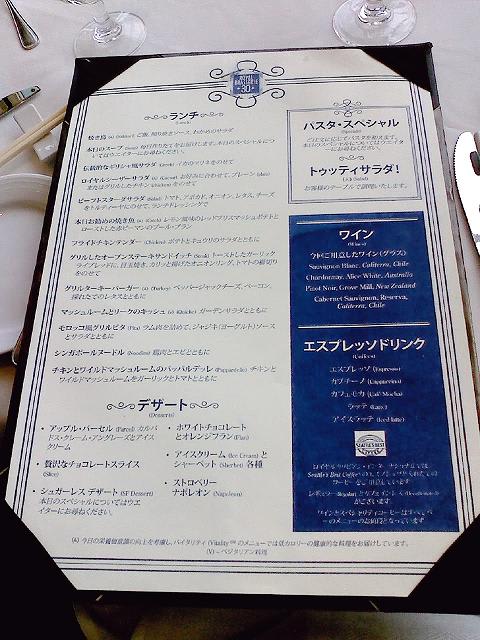 ROYAL
BRASSERIE
30
ランチ
(Lunch)
焼き鳥 (A) (Yakitori) ご飯、照り焼きソース、わかめのサラダ
本日のスープ (Soup) 毎日作りたてをお届けします。本日のスペシャルに
ついてはウエイターにお尋ねください。
伝統的なギリシャ風サラダ (Greek) イカのマリネをのせて
ロイヤルシーザーサラダ (A) (Caesar) お好みに合わせて、プレーン (plain)
またはグリルしたチキン (chicken) をのせて
ビーフトスターダサラダ (Salad) トマト、アボカド、オニオン、レタス、チーズ
をトルティーヤにのせて、ランチドレッシングで
本日お勧めの焼き魚 (A) (Catch) レモン風味のレッドブリスマッシュポテトと
ローストした赤ピーマンのブール・ブラン
フライドチキンテンダー (Chicken) ポテトとキュウリのサラダとともに
グリルしたオープンステーキサンドイッチ (Steak) トーストしたガーリック
ライブレッドに、目玉焼き、カリッと揚げたオニオンリング、トマトの輪切り
をのせて
グリルターキーバーガー (A) (Turkey) ペッパージャックチーズ、ベーコン、
採れたてのレタスとともに
マッシュルームとリークのキッシュ (A) (Quiche) ガーデンサラダとともに
モロッコ風グリルピタ (Pita) ラム肉を詰めて、ジャジキ (ヨーグルト) ソース
とサラダとともに
シンガポールヌードル (Noodles) 鶏肉とエビとともに
チキンとワイルドマッシュルームのパッパルデッレ (Pappardelle) チキンと
ワイルドマッシュルームをガーリックとトマトとともに
デザート
(Desserts)
• アップル・パーセル (Parcel) カルバ
ドス・クレーム・アングレーズとアイス
クリーム
• 贅沢なチョコレートスライス
(Slice)
• シュガーレス デザート (SF Dessert)
本日のスペシャルについてはウエ
イターにお尋ねください。
• ホワイトチョコレート
とオレンジフラン (Flan)
• アイスクリーム (Ice Cream) と
シャーベット (Sherbet) 各種
• ストロベリー
ナポレオン (Napoleon)
パスタ・スペシャル
(Special)
ご注文に応じてパスタを和えます。
本日のスペシャルについてはウエイター
にお尋ねください。
トゥッティサラダ！
(All Salad)
お客様のテーブルで調理いたします。
ワイン
(Wines)
今回ご用意したワイン (グラス)
Sauvignon Blanc, Caliterra, Chile
Chardonnay, Alice White, Australia
Pinot Noir, Grove Mill, New Zealand
Cabernet Sauvignon, Reserva,
Caliterra, Chile
エスプレッソドリンク
(Coffees)
エスプレッソ (Espresso)
カプチーノ (Cappuccino)
カフェモカ (Café Mocha)
ラッテ (Latte)
アイスラッテ (Iced latte)
SEATTLE'S BEST
ロイヤル・カリビアン・インターナショナルでは、
Seattle's Best Coffee
コーヒーをご用意しています
レギュラー (Regular) とカフェインレス (Decaffeinated)
がございます。
ワインとスペシャリティコーヒーはすべて
のメニューのお値段となっています
(A) 今日の栄養価意識の向上を考慮し、バイタリティ (Vitality℠) のメニューでは低カロリーの健康的な料理をお届けしています。
(V) = ベジタリアン料理